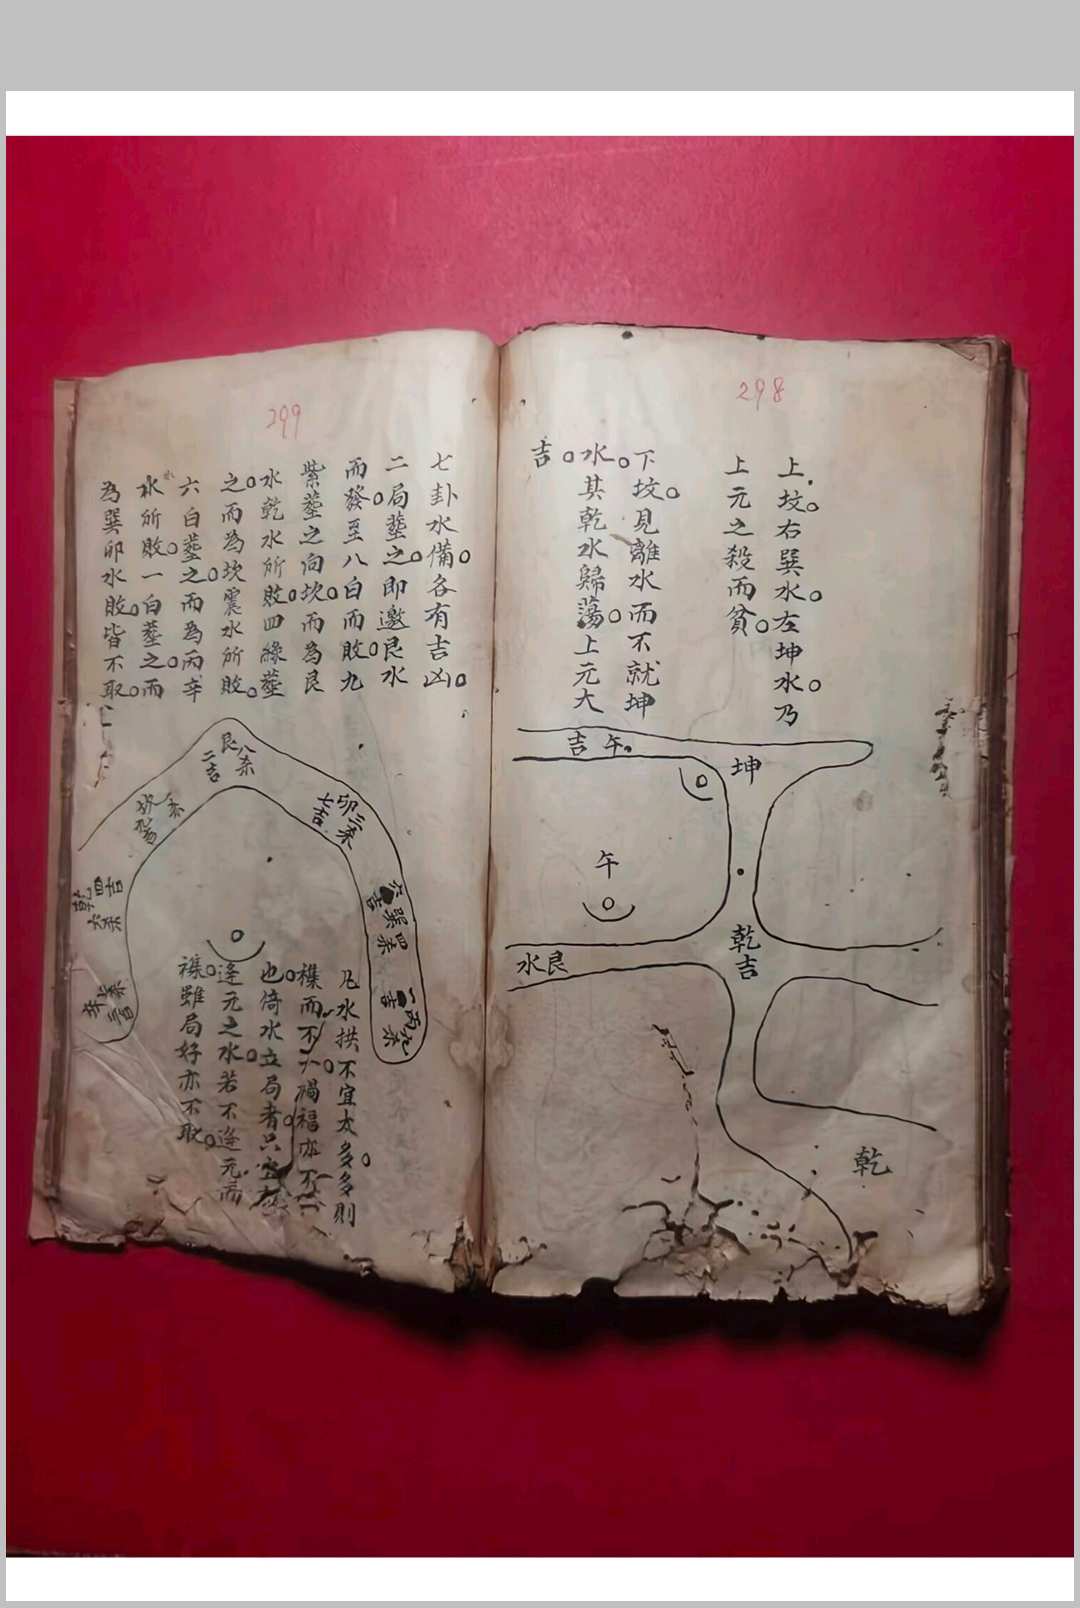 298
上坟。右巽水。左坤水。乃
上元之殺而貧。
下坟。見離水而不就坤
水。其乾水歸蕩。上元大
吉。
吉 午
坤
午
乾吉
艮水
乾
299
七卦水備。各有吉凶。
二局塟之。即邀艮水
而發。至八白而敗。九
紫塟之向坎。而為艮
水乾水所敗。四綠塟
之。而為坎震水所敗。
六白塟之。而為丙辛
水所敗。一白塟之。而
為巽卯水敗。皆不取。
艮八杀
二吉
卯三杀
七吉
巽四杀
六吉
丙九杀
一吉
乾六杀
四吉
凡水拱不宜太多。多則
襍而不
也。倚水立局者。只
逢元之水。若不逢元而
襍。雖局好亦不取。